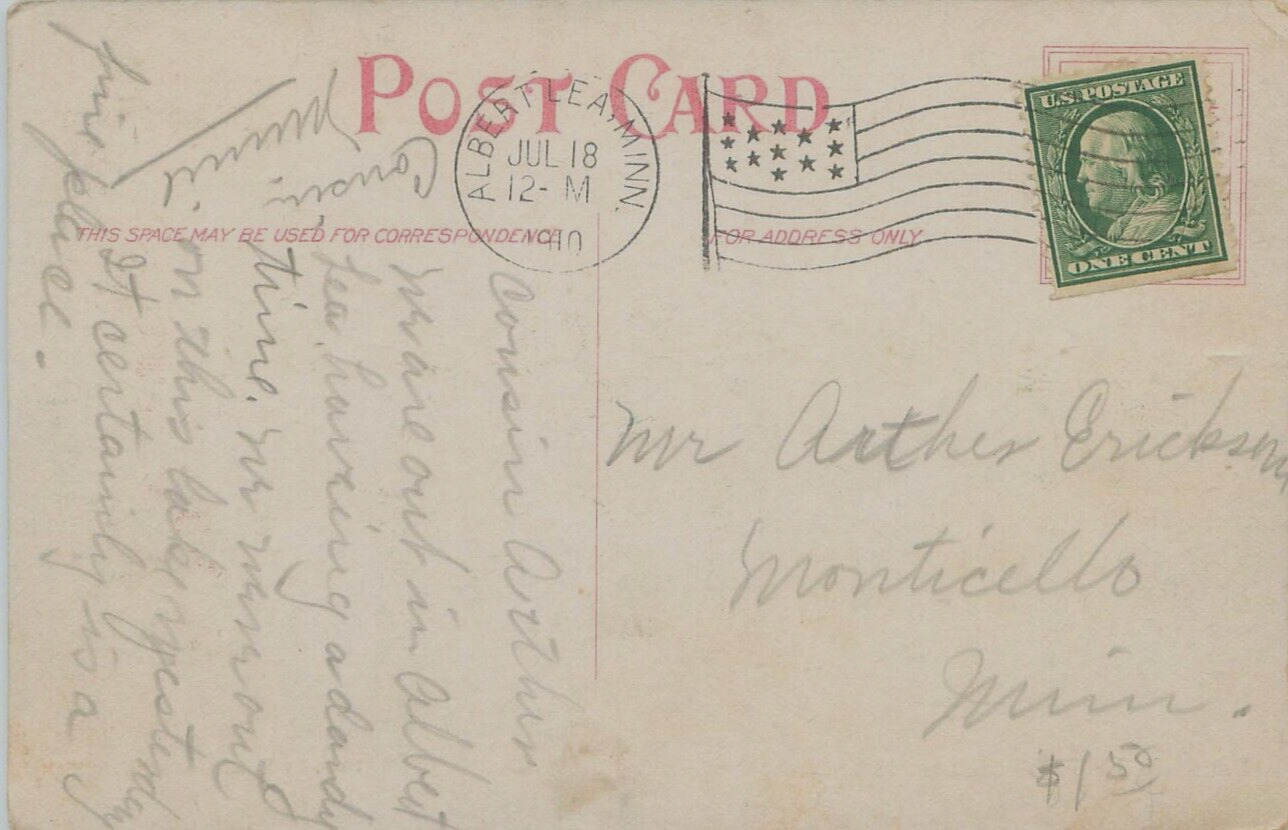 POST CARD
ALBERT LEA, MINN.
JUL 18
12- M
1910
U.S. POSTAGE
ONE CENT
THIS SPACE MAY BE USED FOR CORRESPONDENCE
FOR ADDRESS ONLY
Cousin Arthur
We are out in Albert
Lea, haveing a dandy
time. We were out
on this lake yesterday
It certainly is a
fine place.
Cousin,
Mr Arther Erickson
Monticello
Minn.
$1 50